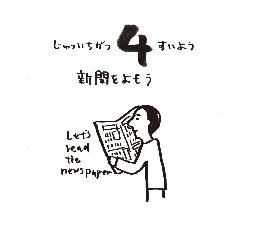 じゅういちがつ 4 すいよう
新聞をよもう
Let's
read
the
newspaper